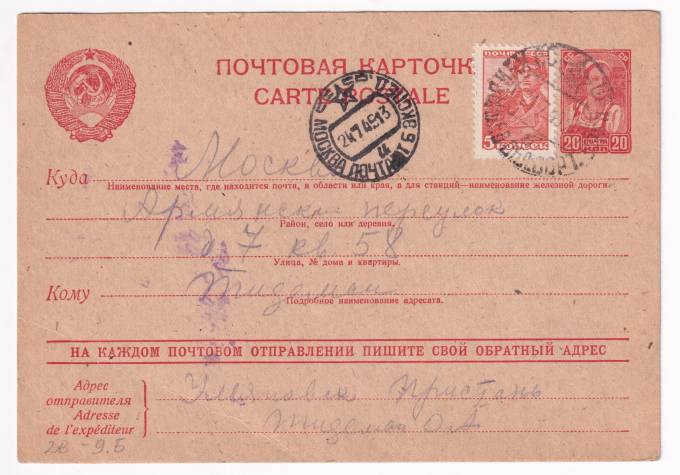 ПОЧТОВАЯ КАРТОЧК
CARTE POSTALE
5 КОПЕЕК
20 ПОЧТА КОП. 20
МОСКВА ПОЧТАМТ
24 7 45 13
Москва
Куда
Наименование места, где находится почта, и области или края, а для станций—наименование железной дороги
Армянски переулок
Район, село или деревня.
д 7 кв 58
Улица, № дома и квартиры.
Кому Тидеман
Подробное наименование адресата.
НА КАЖДОМ ПОЧТОВОМ ОТПРАВЛЕНИИ ПИШИТЕ СВОЙ ОБРАТНЫЙ АДРЕС
Адрес
отправителя
Adresse
de l'expéditeur
Ульяновск Пристань
Тидеман О.А
28 - 9.5